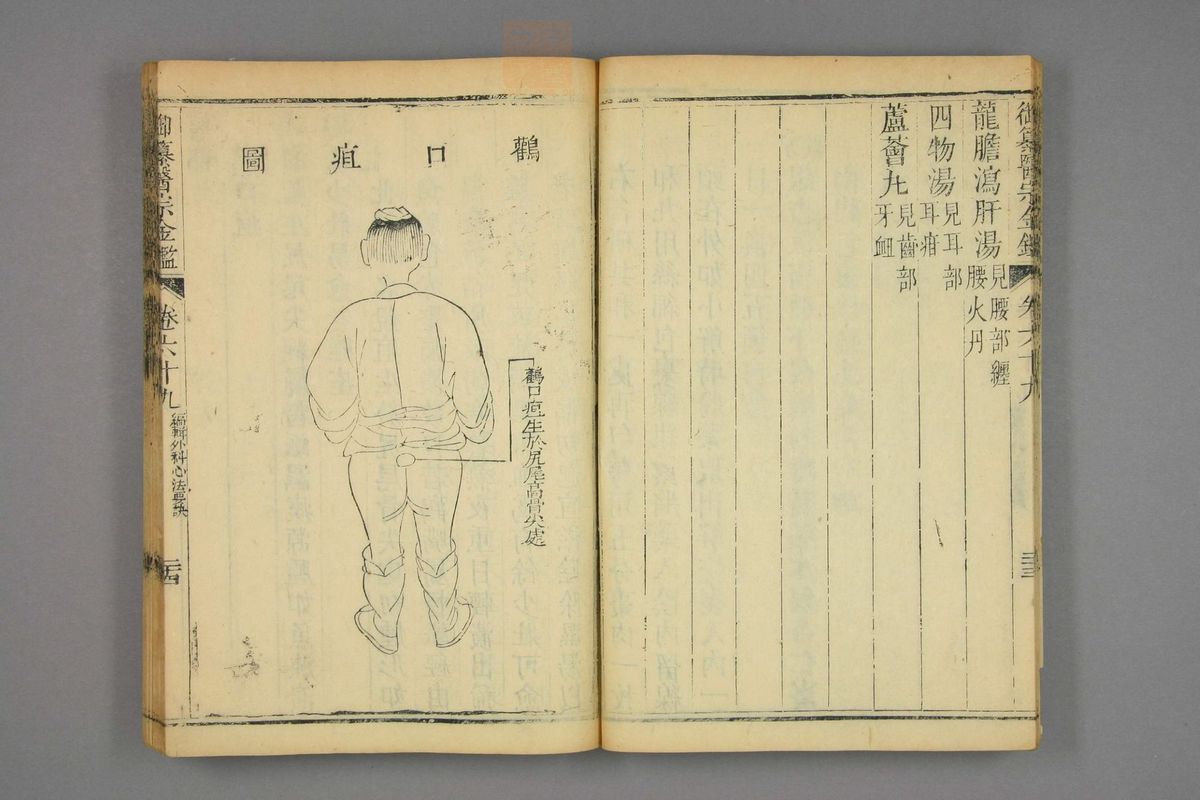 御纂醫宗金鑑
卷六十九
三十三
龍膽瀉肝湯見腰部纏腰火丹
四物湯見耳部耳疳
蘆薈丸見齒部牙衄
鸛口疽圖
鸛口疽生於尻尾高骨尖處
御纂醫宗金鑑
卷六十九
編輯外科心法要訣
三十四